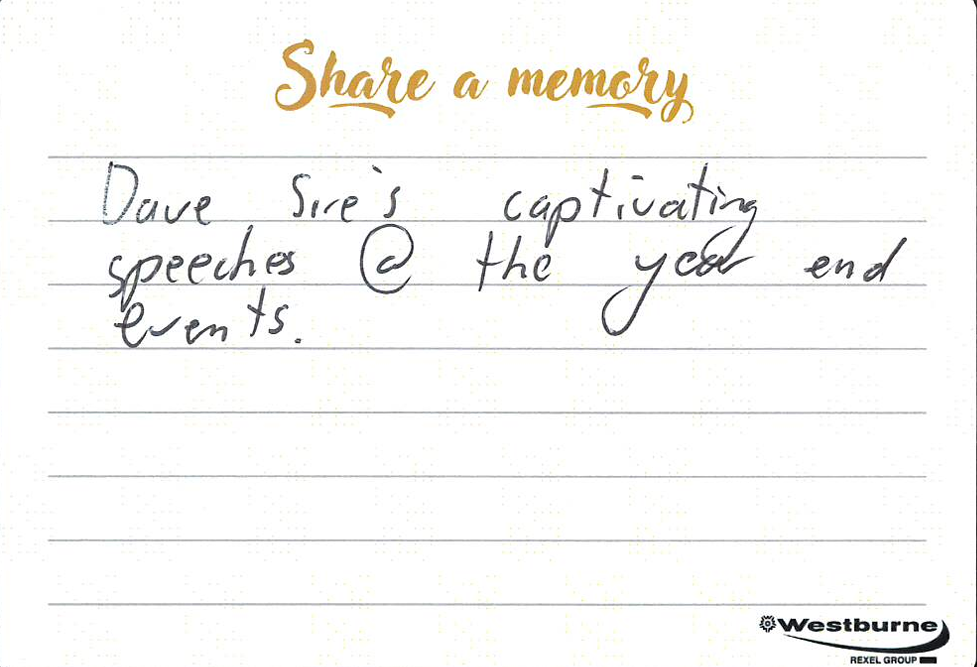 Share a memory
Dave Sire's captivating
speeches @ the year end
events.
Westburne
REXEL GROUP